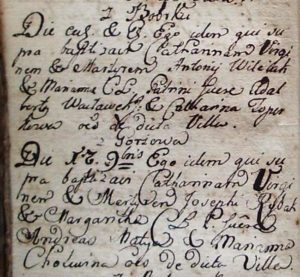 z Bobrki
Die ead. & C. Ego idem qui su
pra baptizavi Catharinam Virgi
nem & Martyrem Antonij Witelak
& Marianna C. L. Patrini fuere Adal
bertg & Catharina Toper
kowa oēs de dicta Villa.
z Gorzowa
Die 9bris Ego idem qui su
pra baptizavi Catharinam Virgi
nem & Martyrem Josephi Rybak
& Margaritha C L P fuere
Andreas Matyja & Marianna
oēs de dicta Villa